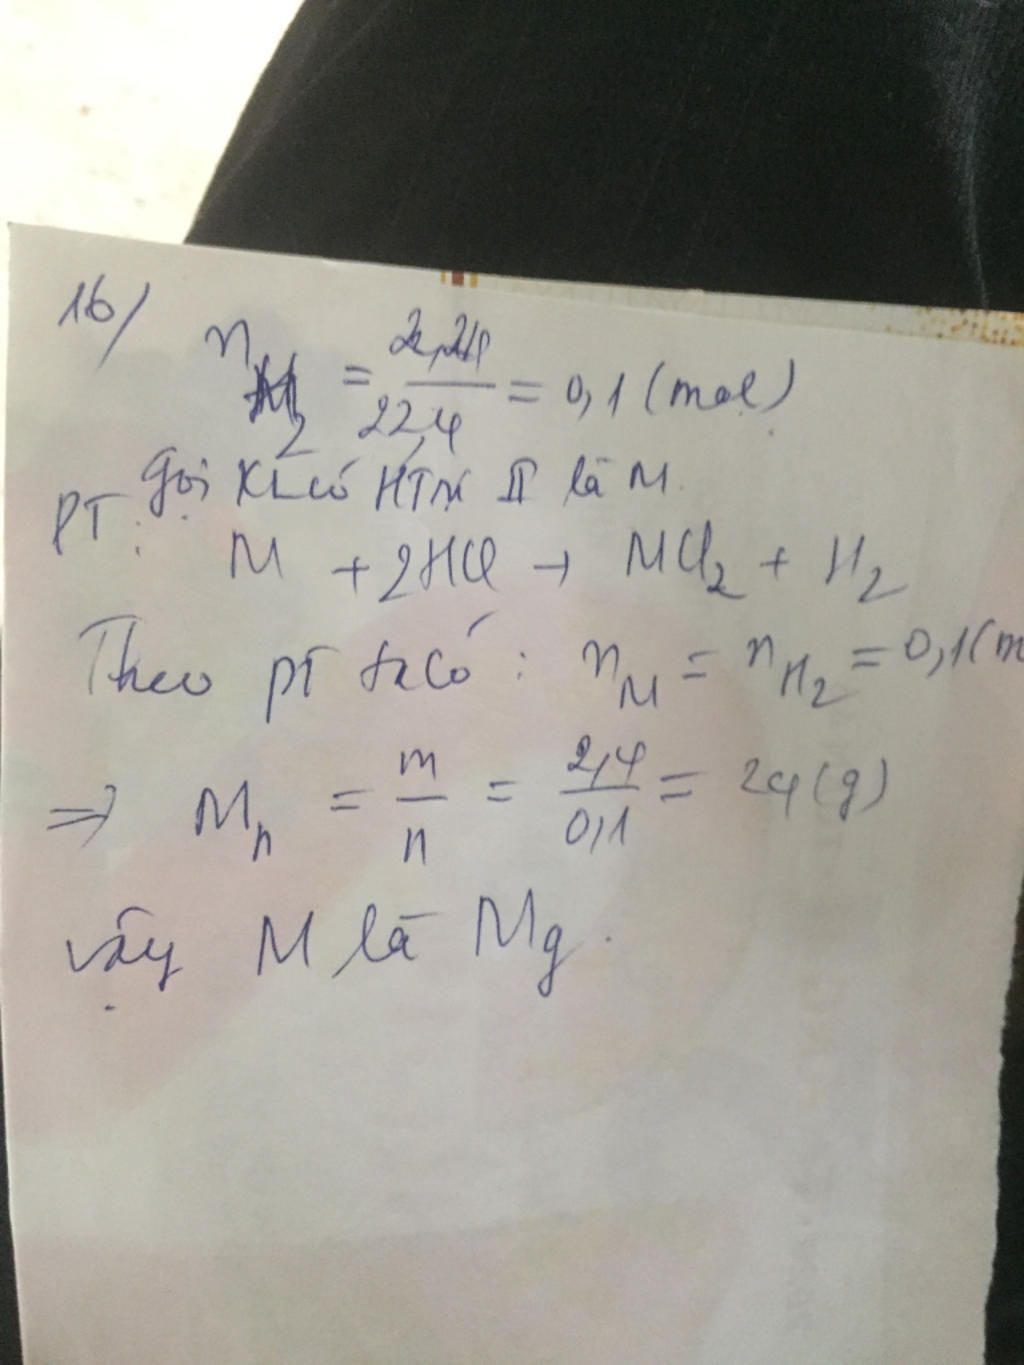 16/
n H2 = 2,24 / 22,4 = 0,1 (mol)
Gọi KL có HTrị II là M.
PT:
M + 2HCl → MCl2 + H2
Theo pT ta có: nM = nH2 = 0,1(m
=> Mn = m / n = 2,4 / 0,1 = 24 (g)
vậy M là Mg.